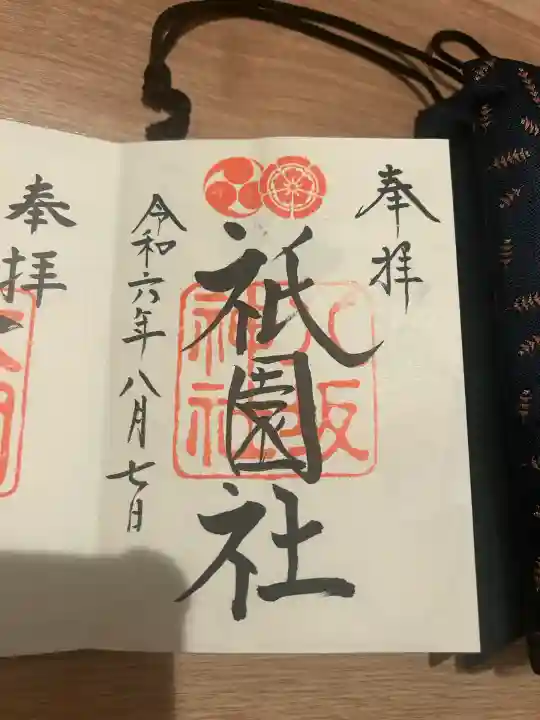 奉拝
祇園社
八坂
神社
令和六年八月七日
奉拝